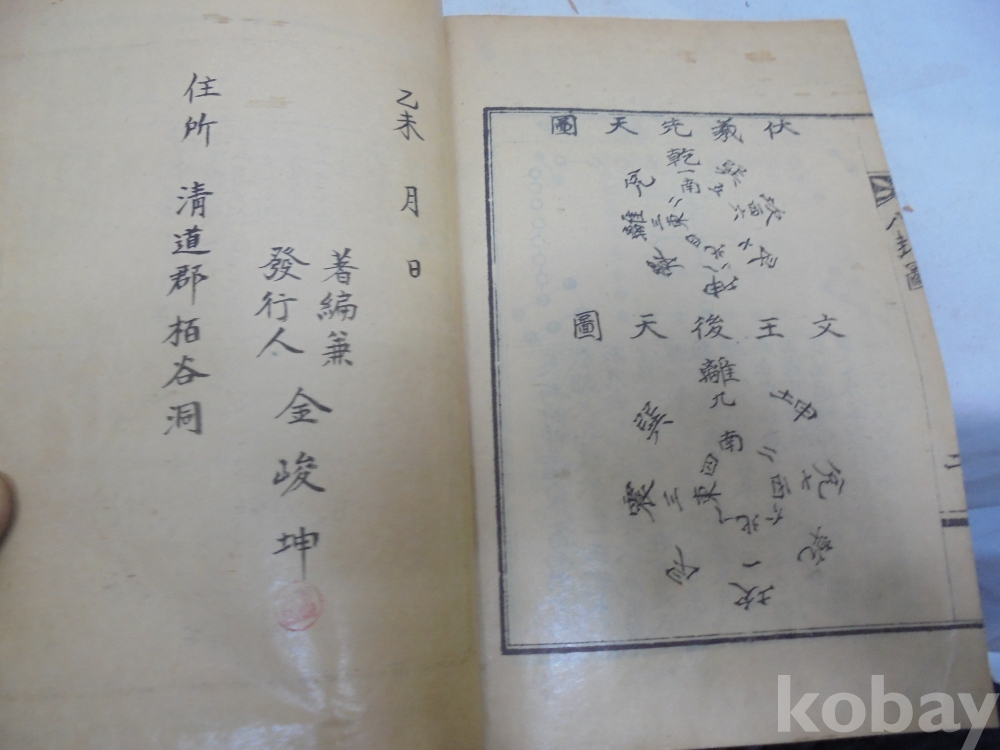 伏羲先天圖
乾一
南
兌二
離三
東
震四
巽五
西
坎六
艮七
北
坤八
文王後天圖
離九
南
巽四
坤二
震三
東
西
兌七
乾六
北
艮
坎一
八卦圖
二
乙未 月 日
著編兼
發行人 金峻坤
住所 清道郡栢谷洞
kobay